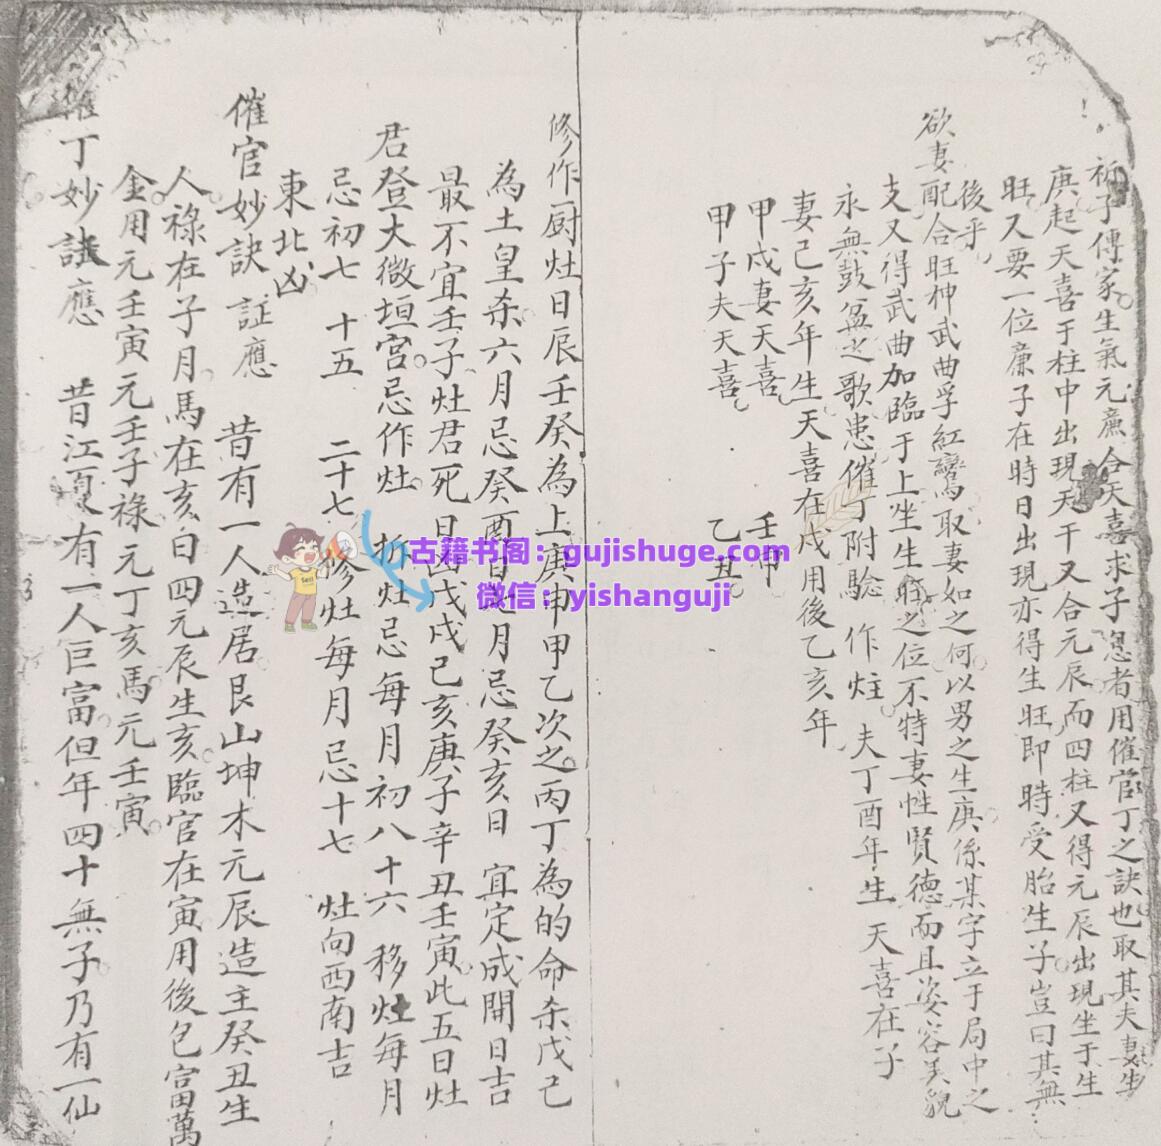 祈子傳家生氣元廉合天喜求子息者用催官丁之訣也取其夫妻生
庚起天喜于柱中出現天干又合元辰而四柱又得元辰出現坐于生
旺又要一位廉子在時日出現亦得生旺即時受胎生子豈曰其無
後乎
欲妻配合旺神武曲孚紅鸞取妻如之何以男之生庚係某字立于局中之
支又得武曲加臨于上坐生旺之位不特妻性賢德而且姿容美貌
永無鼓盆之歌患催丁附驗 作灶 夫丁酉年生天喜在子
妻己亥年生天喜在戌用後乙亥年
甲戌妻天喜 壬申
甲子夫天喜 乙丑
修作厨灶日辰壬癸為上庚申甲乙次之丙丁為的命杀戊己
為土皇杀六月忌癸酉日七月忌癸亥日 宜定成開日吉
最不宜壬子灶君死日丙戌己亥庚子辛丑壬寅此五日灶
君登大微垣宮忌作灶 拆灶忌每月初八十六 移灶每月
忌初七 十五 二十七 修灶每月忌十七 灶向西南吉
東北凶
催官妙訣証應 昔有一人造居艮山坤木元辰造主癸丑生
人祿在子月馬在亥日四元辰生亥臨官在寅用後包富萬
金用元壬寅元壬子祿元丁亥馬元壬寅
催丁妙訣應 昔江夏有一人巨富但年四十無子乃有一仙
古籍书阁：gujishuge.com
微信：yishanguji